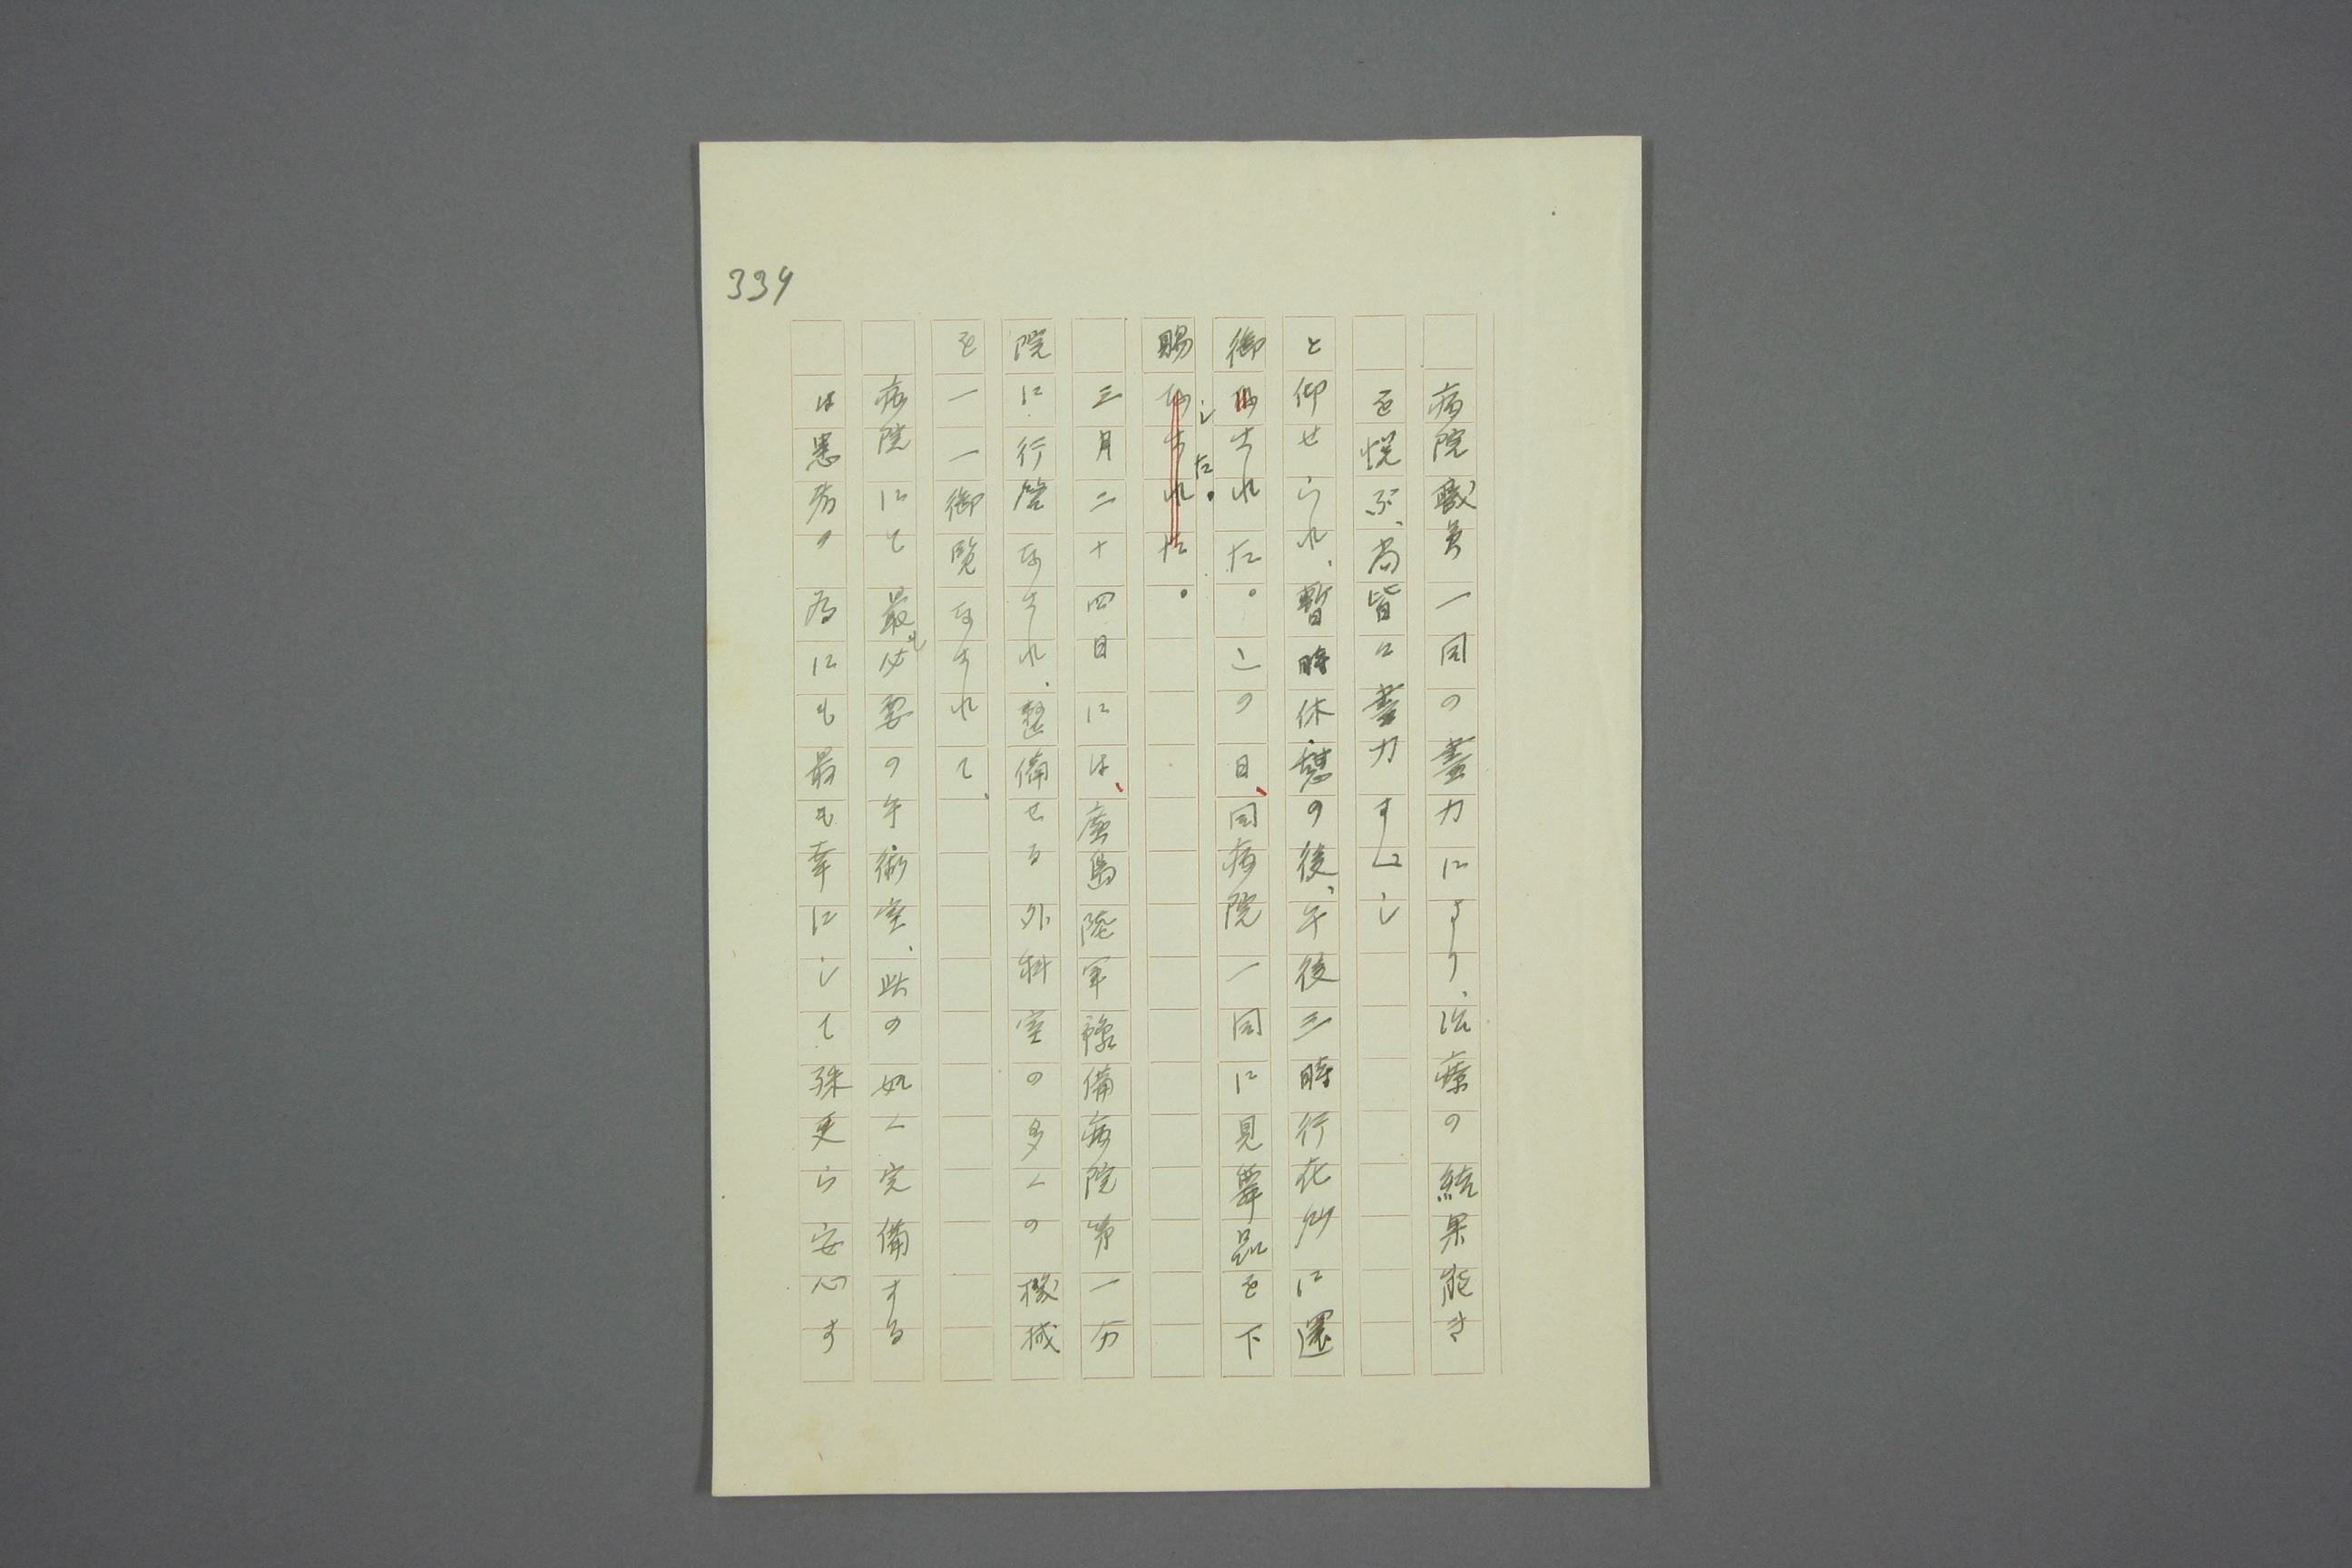 339
病院職員一同の盡力により、治療の結果能き
を悦ぶ、尚皆に盡力すべし
と仰せられ、暫時休憩の後、午後三時行在所に還
御なされた。この日、同病院一同に見舞品を下
賜なされた。
した。
三月二十四日には、廣島陸軍豫備病院第一分
院に行啓なされ、整備せる外科室の多くの機械
を一一御覧なされて、
病院にて最も必要の手術室、此の如く完備する
は患者の為にも最も幸にして殊更ら安心す